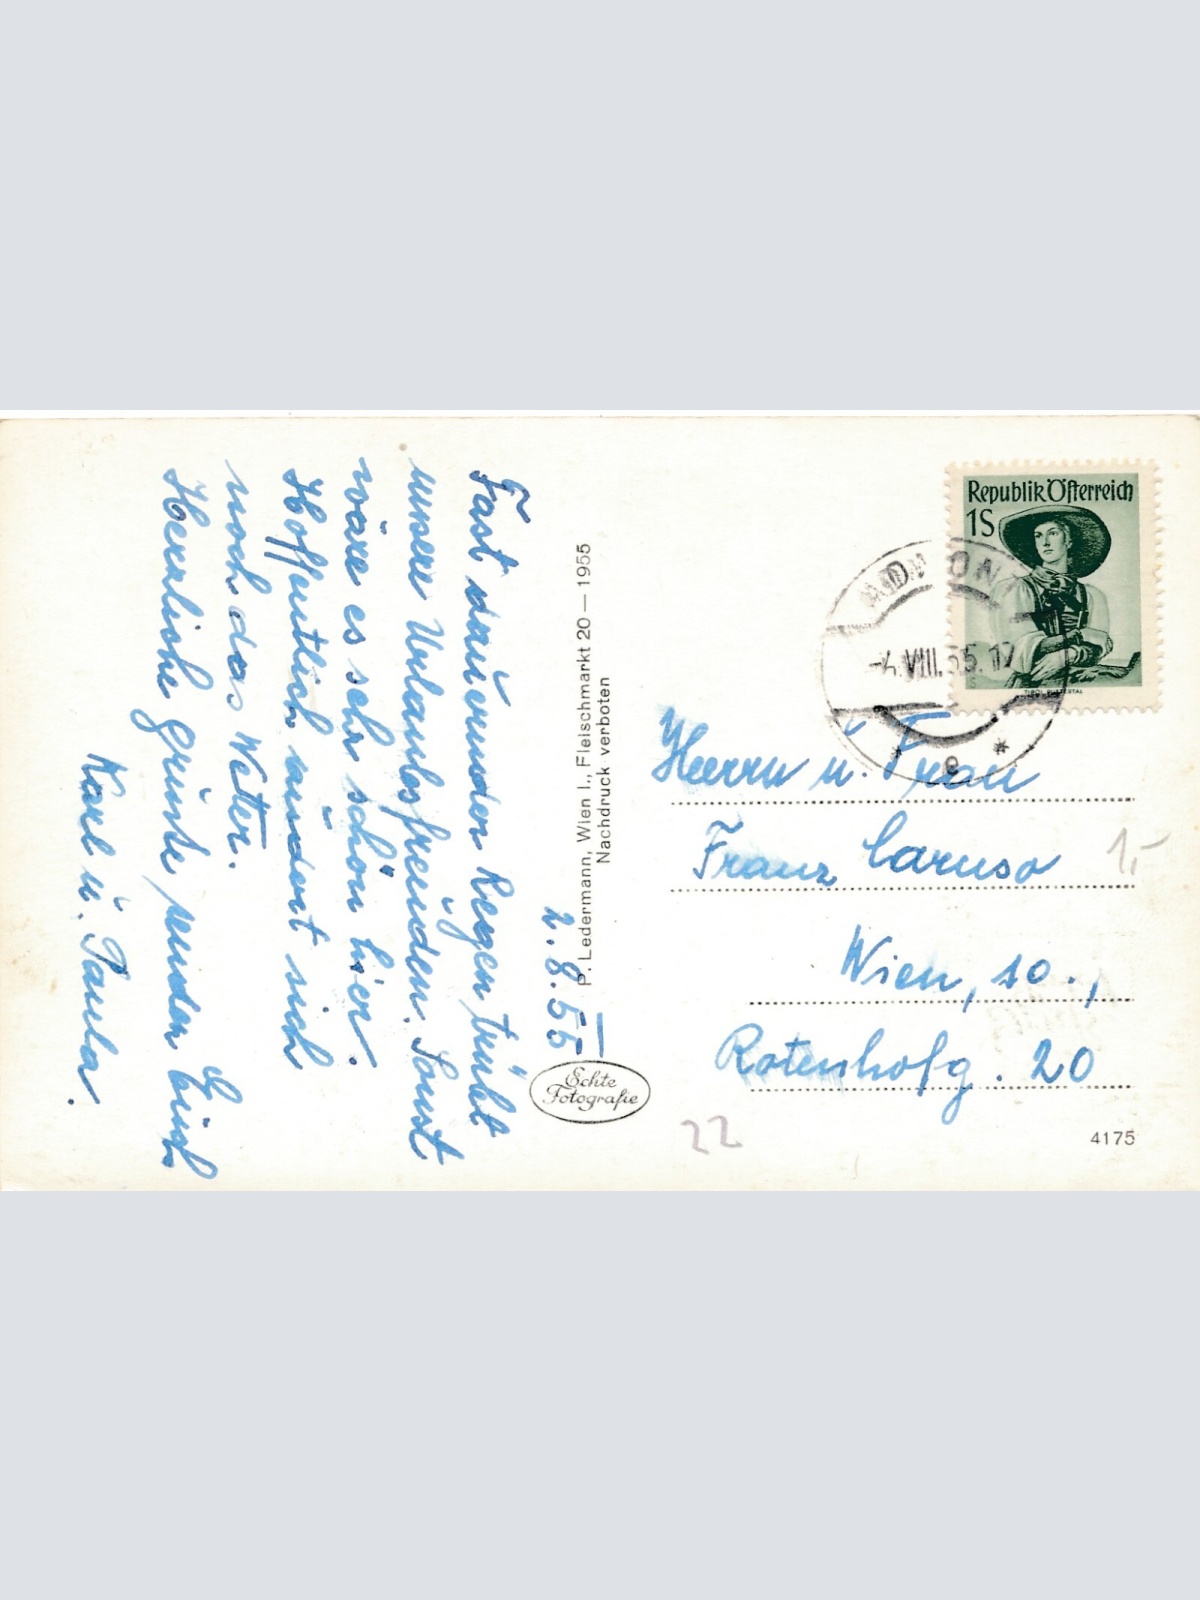 2.8.55
Fast dauernder Regen trübt
unsere Urlaubsfreuden. Sonst
wäre es sehr schön hier.
Hoffentlich ändert sich
noch das Wetter.
Herrliche Grüße senden Euch
Karl u. Paula.
P. Ledermann, Wien I., Fleischmarkt 20 — 1955
Nachdruck verboten
Echte
Fotografie
Republik Österreich
1S
TIROL PUSTERTAL
-4.VIII.55.17
e *
Herrn u. Frau
Franz Caruso
1,-
Wien, 10.,
Rotenhofg. 20
22
4175